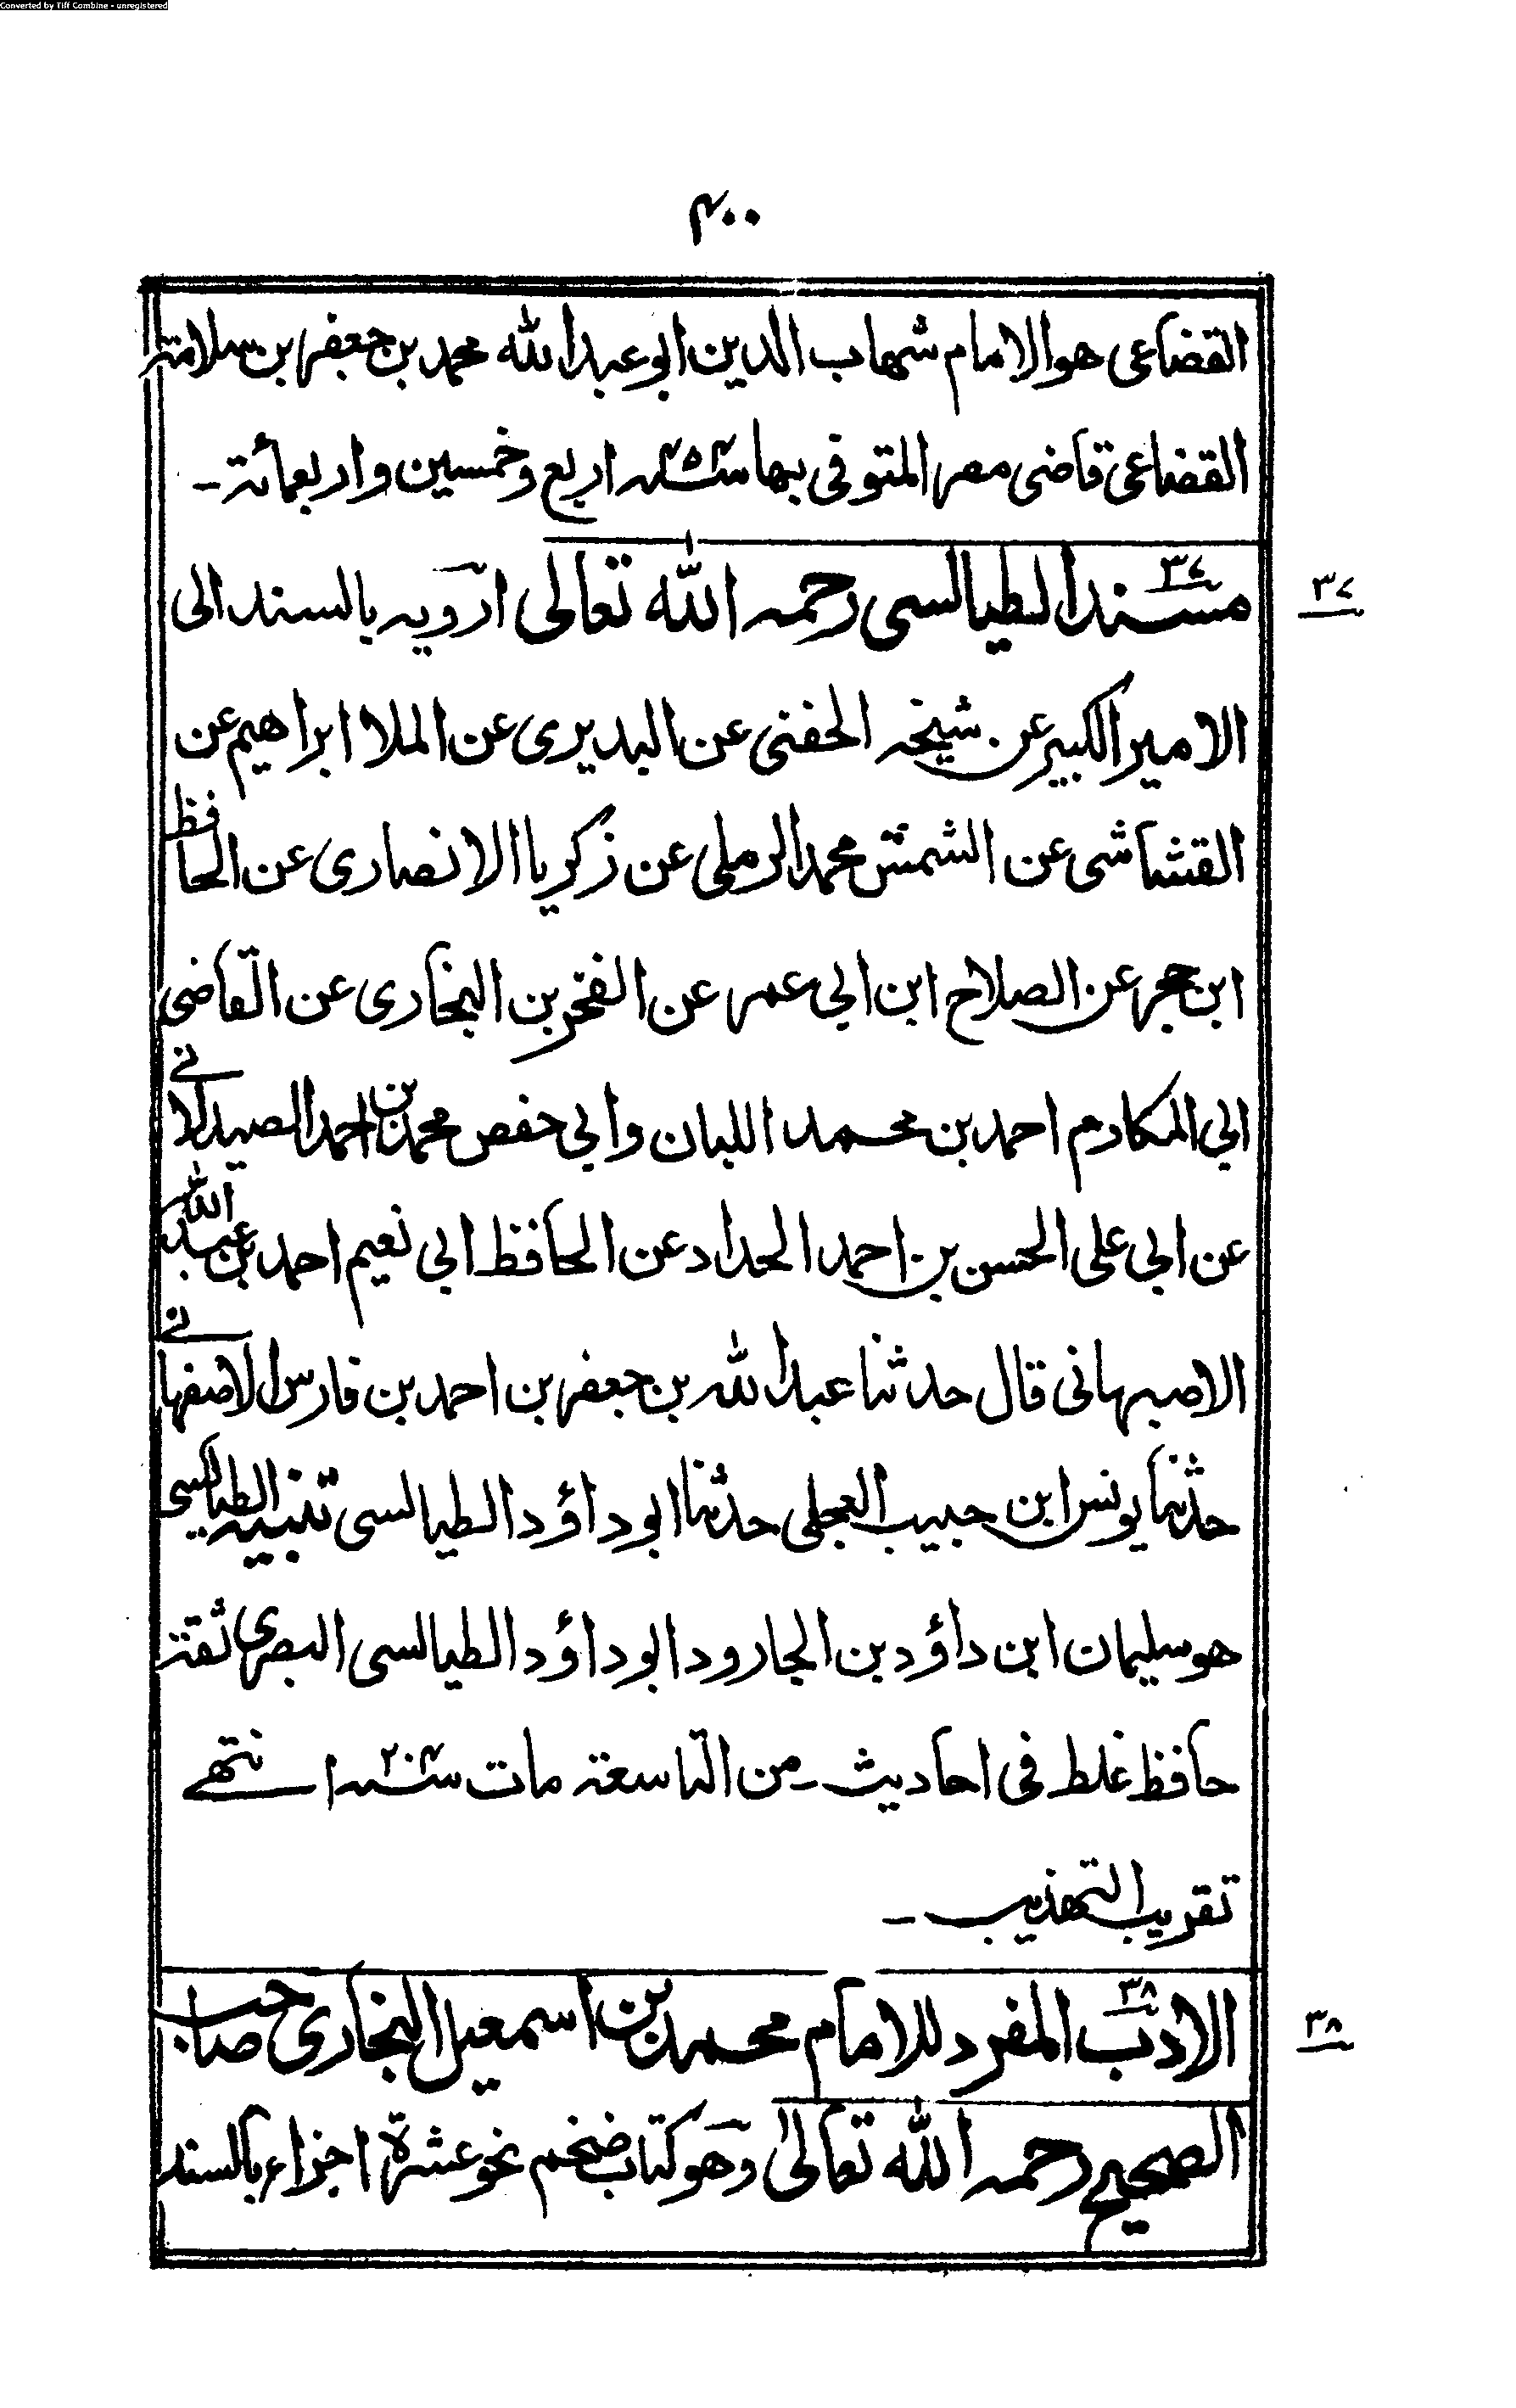 Converted by Tiff Combine - unregistered
۴۰۰
القضاعی هو الامام شهاب الدین ابو عبد الله محمد بن جعفر بن سلامة
القضاعی قاضی مصر المتوفی بها سنة ۴۵۴ اربع وخمسین واربعمائة۔
۳۷
مسند الطیالسی رحمه الله تعالی ارویه بالسند الی
الامیر الکبیر عن شیخه الحفنی عن البدیری عن الملا ابراهیم عن
القشاشی عن الشمس محمد الرملی عن زکریا الانصاری عن الحافظ
ابن حجر عن الصلاح ابن ابی عمر عن الفخر بن البخاری عن القاضی
ابی المکارم احمد بن محمد اللبان وابی حفص محمد بن احمد الصیدلانے
عن ابی علی الحسن بن احمد الحداد عن الحافظ ابی نعیم احمد بن عبد الله
الاصبهانی قال حدثنا عبد الله بن جعفر بن احمد بن فارس الاصفهانے
حدثنا یونس ابن حبیب العجلی حدثنا ابو داؤد الطیالسی تنبیه الطیالسی
هو سلیمان ابن داؤد بن الجارود ابو داؤد الطیالسی البصری ثقة
حافظ غلط فی احادیث۔ من التاسعة مات سنة ۲۰۴ انتهے
تقریب التهذیب۔
۳۸
الادب المفرد للامام محمد بن اسمعیل البخاری صاحب
الصحیح رحمه الله تعالیٰ وهو کتاب ضخم نحو عشرة اجزاء بالسند